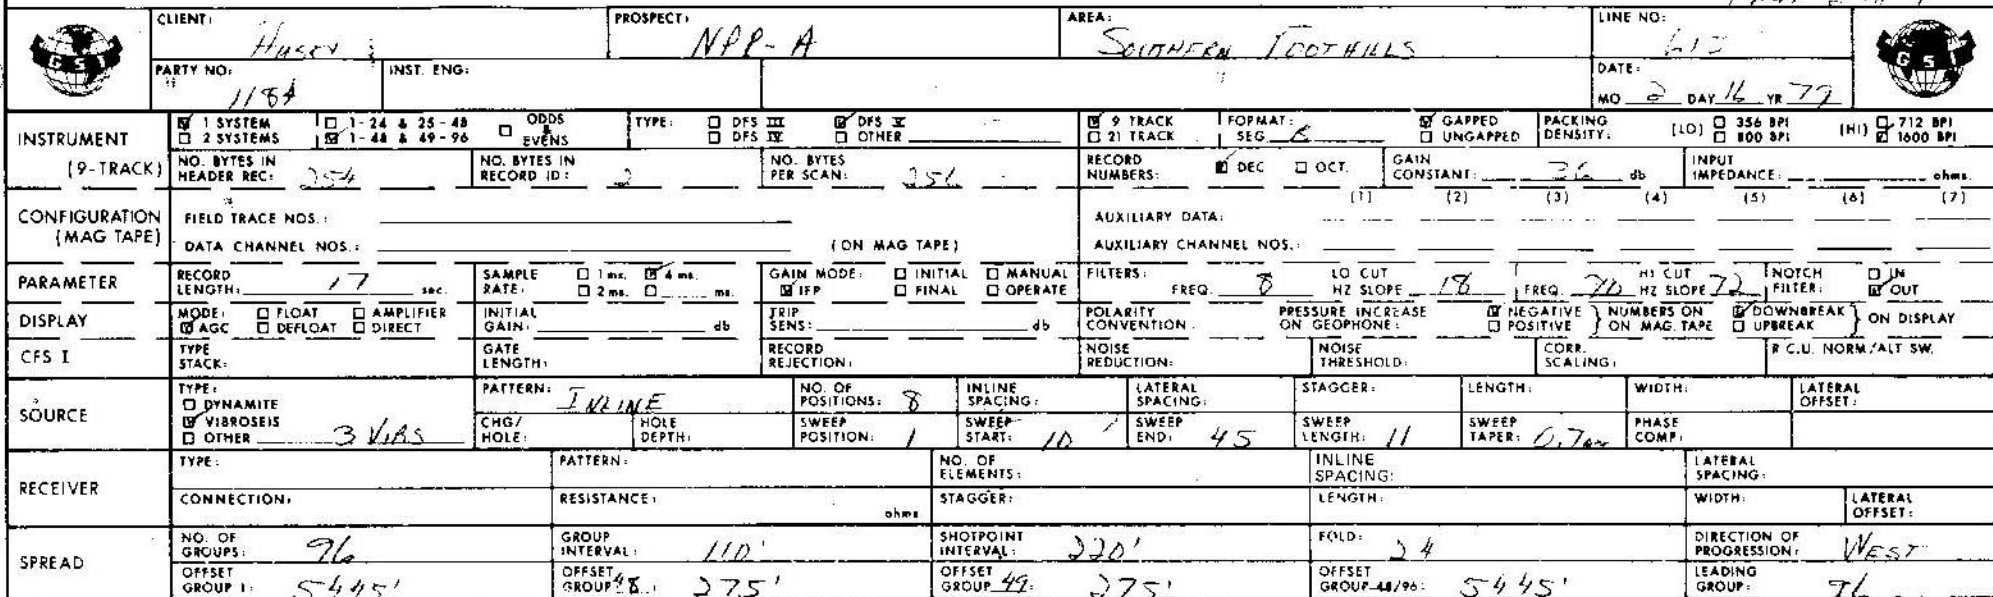 CLIENT: Husky
PROSPECT: NPR-A
AREA: SOUTHERN FOOTHILLS
LINE NO:
GSI
PARTY NO: 1184
INST. ENG:
DATE: MO 2 DAY 16 YR 79
GSI
INSTRUMENT (9-TRACK)
1 SYSTEM 1-24 & 25-48 ODDS & EVENS TYPE: DFS III DFS V 9 TRACK FORMAT: SEG B GAPPED PACKING DENSITY: (LO) 356 BPI (HI) 712 BPI
2 SYSTEMS 1-48 & 49-96 DFS IV OTHER 21 TRACK UNGAPPED 800 BPI 1600 BPI
NO. BYTES IN HEADER REC: 254 NO. BYTES IN RECORD ID: 2 NO. BYTES PER SCAN: 256 RECORD NUMBERS: DEC OCT. GAIN CONSTANT: 36 db INPUT IMPEDANCE: ohms.
CONFIGURATION (MAG TAPE)
(1) (2) (3) (4) (5) (6) (7)
FIELD TRACE NOS.: AUXILIARY DATA:
DATA CHANNEL NOS.: (ON MAG TAPE) AUXILIARY CHANNEL NOS.:
PARAMETER
RECORD LENGTH: 17 sec. SAMPLE RATE: 1 ms. 4 ms. 2 ms. ms. GAIN MODE: INITIAL MANUAL IFP FINAL OPERATE FILTERS: FREQ. 8 LO CUT HZ SLOPE 18 FREQ. HI CUT HZ SLOPE 72 NOTCH FILTER: IN OUT
DISPLAY
MODE: FLOAT AMPLIFIER AGC DEFLOAT DIRECT INITIAL GAIN: db TRIP SENS: db POLARITY CONVENTION: PRESSURE INCREASE ON GEOPHONE: NEGATIVE POSITIVE NUMBERS ON ON MAG. TAPE DOWNBREAK UPBREAK ON DISPLAY
CFS I
TYPE STACK: GATE LENGTH: RECORD REJECTION: NOISE REDUCTION: NOISE THRESHOLD: CORR. SCALING: R.C.U. NORM./ALT SW.
SOURCE
TYPE: DYNAMITE VIBROSEIS OTHER 3 VIBS
PATTERN: INLINE NO. OF POSITIONS: 8 INLINE SPACING: LATERAL SPACING: STAGGER: LENGTH: WIDTH: LATERAL OFFSET:
CHG/HOLE: HOLE DEPTH: SWEEP POSITION: 1 SWEEP START: 10 SWEEP END: 45 SWEEP LENGTH: 11 SWEEP TAPER: 0.7 PHASE COMP:
RECEIVER
TYPE: PATTERN: NO. OF ELEMENTS: INLINE SPACING: LATERAL SPACING:
CONNECTION: RESISTANCE: ohms STAGGER: LENGTH: WIDTH: LATERAL OFFSET:
SPREAD
NO. OF GROUPS: 96 GROUP INTERVAL: 110' SHOTPOINT INTERVAL: 220' FOLD: 24 DIRECTION OF PROGRESSION: WEST
OFFSET GROUP 1: 5445' OFFSET GROUP 48: 275' OFFSET GROUP 49: 275' OFFSET GROUP 48/96: 5445' LEADING GROUP: 96